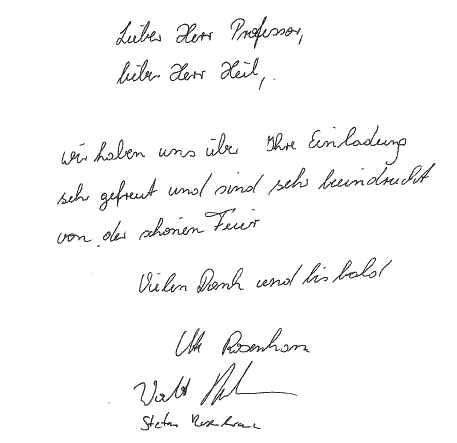 Lieber Herr Professor,
lieber Herr Heil,
wir haben uns über Ihre Einladung
sehr gefreut und sind sehr beeindruckt
von der schönen Feier
Vielen Dank und bis bald
Ute Rosenhan
Stefan